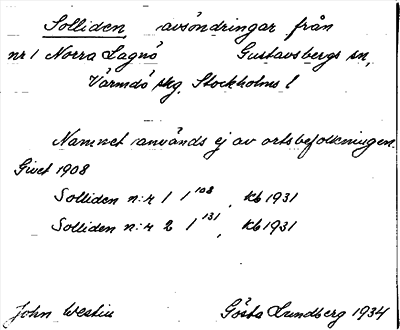 Solliden, avsöndringar från
nr 1 Norra Lagnö Gustavsbergs sn,
Värmdö skg, Stockholms l
Namnet används ej av ortsbefolkningen.
Givet 1908
Solliden n:r 1 1^108, kb 1931
Solliden n:r 2 1^131, kb 1931
John Westin Gösta Lundberg 1934